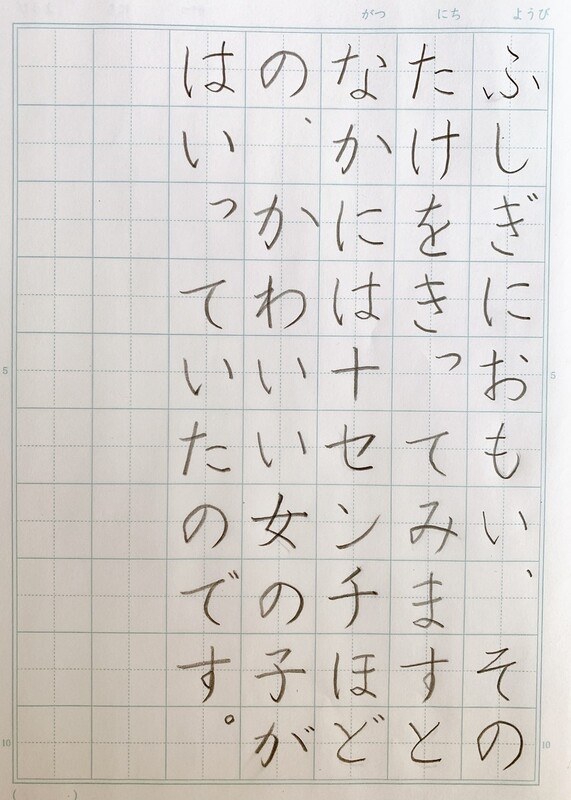 がつ にち ようび
ふしぎにおもい、その
たけをきってみますと
なかには十センチほど
の、かわいい女の子が
はいっていたのです。
5
10
5
10